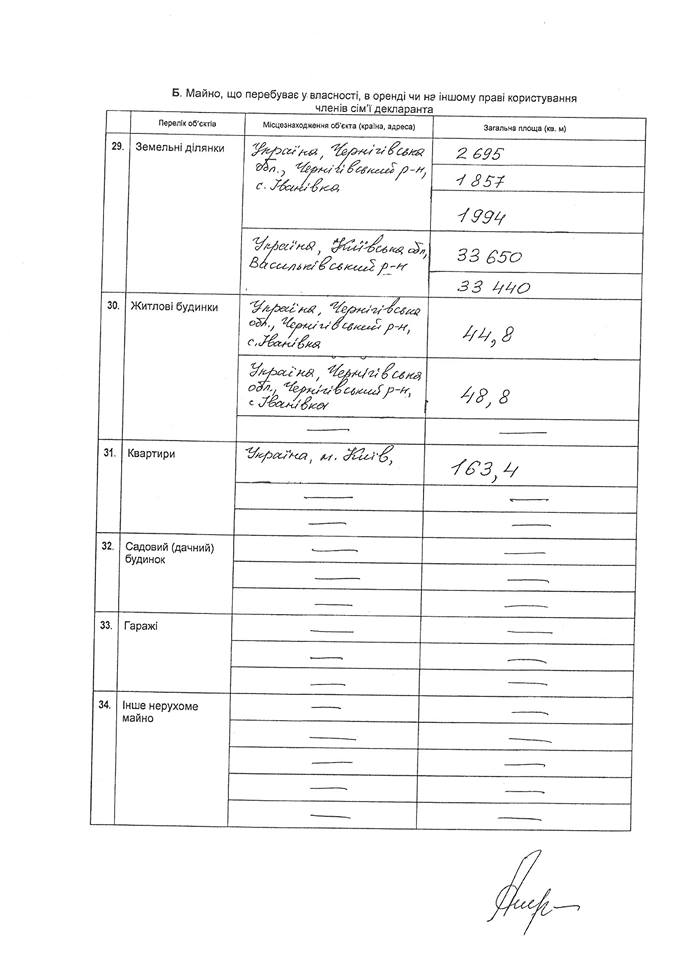 Б. Майно, що перебуває у власності, в оренді чи на іншому праві користування
членів сім'ї декларанта
Перелік об'єктів
Місцезнаходження об'єкта (країна, адреса)
Загальна площа (кв. м)
29.
Земельні ділянки
Україна, Чернігівська
обл., Чернігівський р-н,
с. Іванівка
2 695
1 857
1994
Україна, Київська обл,
Васильківський р-н
33 650
33 440
30.
Житлові будинки
Україна, Чернігівська
обл., Чернігівський р-н,
с. Іванівка
44,8
Україна, Чернігівська
обл., Чернігівський р-н,
с Іванівка
48,8
31.
Квартири
Україна, м. Київ,
163,4
32.
Садовий (дачний)
будинок
33.
Гаражі
34.
Інше нерухоме
майно